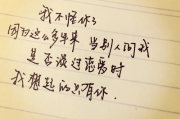 我不怪你了
因为这么多年来 当别人问我
是否谈过恋爱时
我想起的只有你.